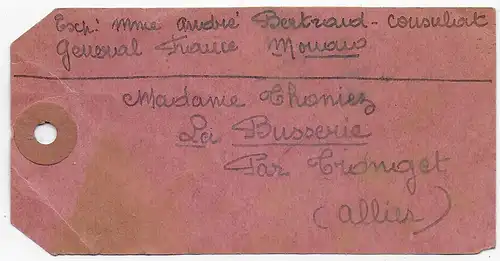 Exp: Mme André Bertrand - Consulat
General France Monaco
Madame Thoniez
La Busserie
Par Tronget
(Allier)